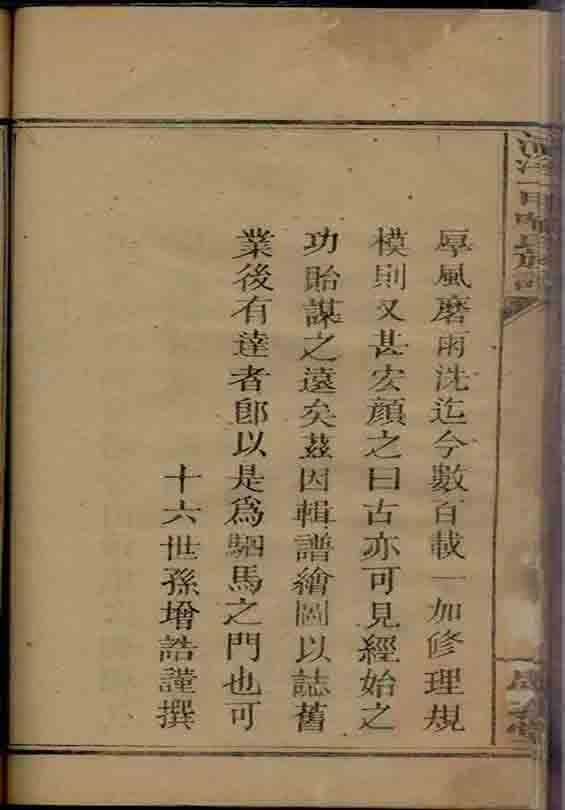 厚風磨雨洗迄今數百載一加修理規
模則又甚宏顏之曰古亦可見經始之
功貽謀之遠矣玆因輯譜繪圖以誌舊
業後有達者即以是為駟馬之門也可
十六世孫增誥謹撰